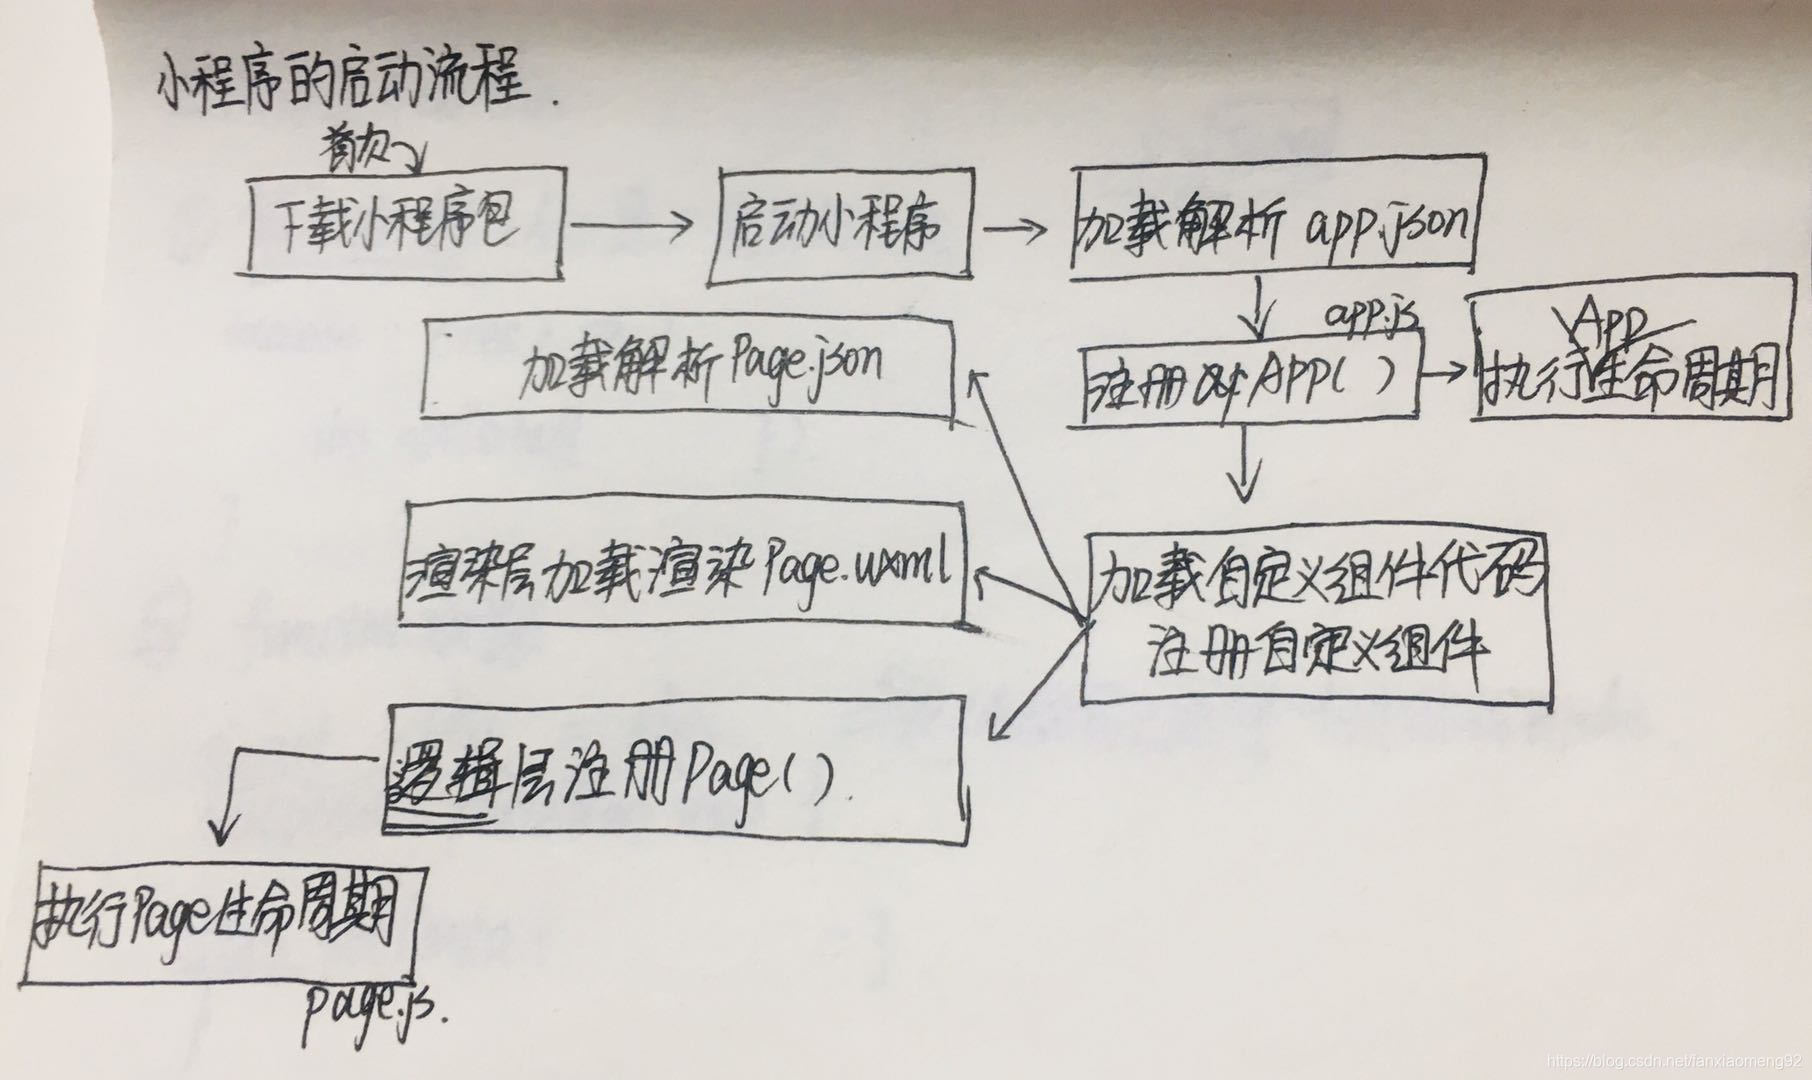 小程序的启动流程.
首次
下载小程序包
启动小程序
加载解析 app.json
app.js
注册 App( )
App
执行生命周期
加载解析 Page.json
渲染层加载渲染 Page.wxml
加载自定义组件代码
注册自定义组件
逻辑层注册 Page( ).
执行Page生命周期
page.js.
https://blog.csdn.net/fanxiaomeng92